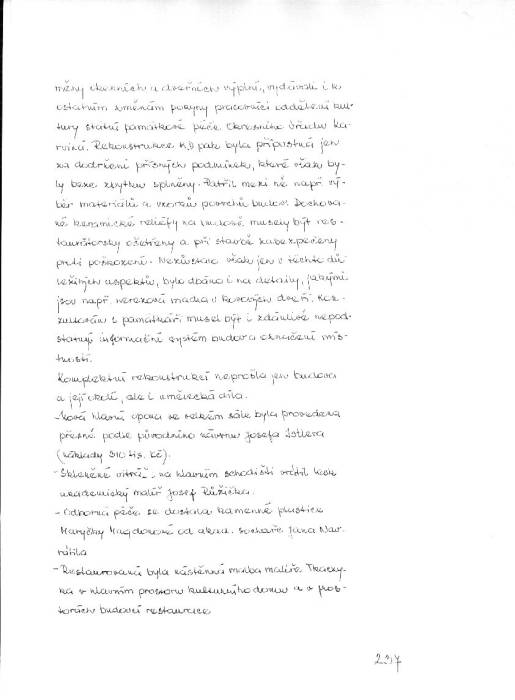 měny okenních a dveřních výplní, vydávali i k
ostatním změnám pokyny pracovníci oddělení kul-
tury státní památkové péče Okresního úřadu Kar-
viná. Rekonstrukce KD pak byla přípustná jen
za dodržení přísných podmínek, které však by-
ly beze zbytku splněny. Patřil mezi ně např. vý-
běr materiálů a vzorků povrchů budov. Dochova-
né keramické reliéfy na budově musely být res-
taurátorsky ošetřeny a při stavbě zabezpečeny
proti poškození. Nezůstalo však jen u těchto dů-
ležitých aspektů, bylo dbáno i na detaily, jakými
jsou např. nerezová madla u kovových dveří. Kon-
zultován s památkáři musel být i zdánlivě nepod-
statný informační systém budov a označení míst-
ností.
Kompletní rekonstrukcí neprošla jen budova
a její okolí, ale i umělecká díla.
- Nová hlavní opona ve velkém sále byla provedena
přesně podle původního návrhu Josefa Istlera
(náklady 310 tis. kč).
- Skleněné vitráži na hlavním schodišti vrátil lesk
akademický malíř Josef Růžička.
- Odborná péče se dostala kamenné plastice
Maryčky Magdonové od akad. sochaře Jana Nav-
rátila
- Restaurovaná byla nástěnná malba malíře Tkaczy-
ka v hlavním prostoru kulturního domu a v pros-
torách budoucí restaurace
237